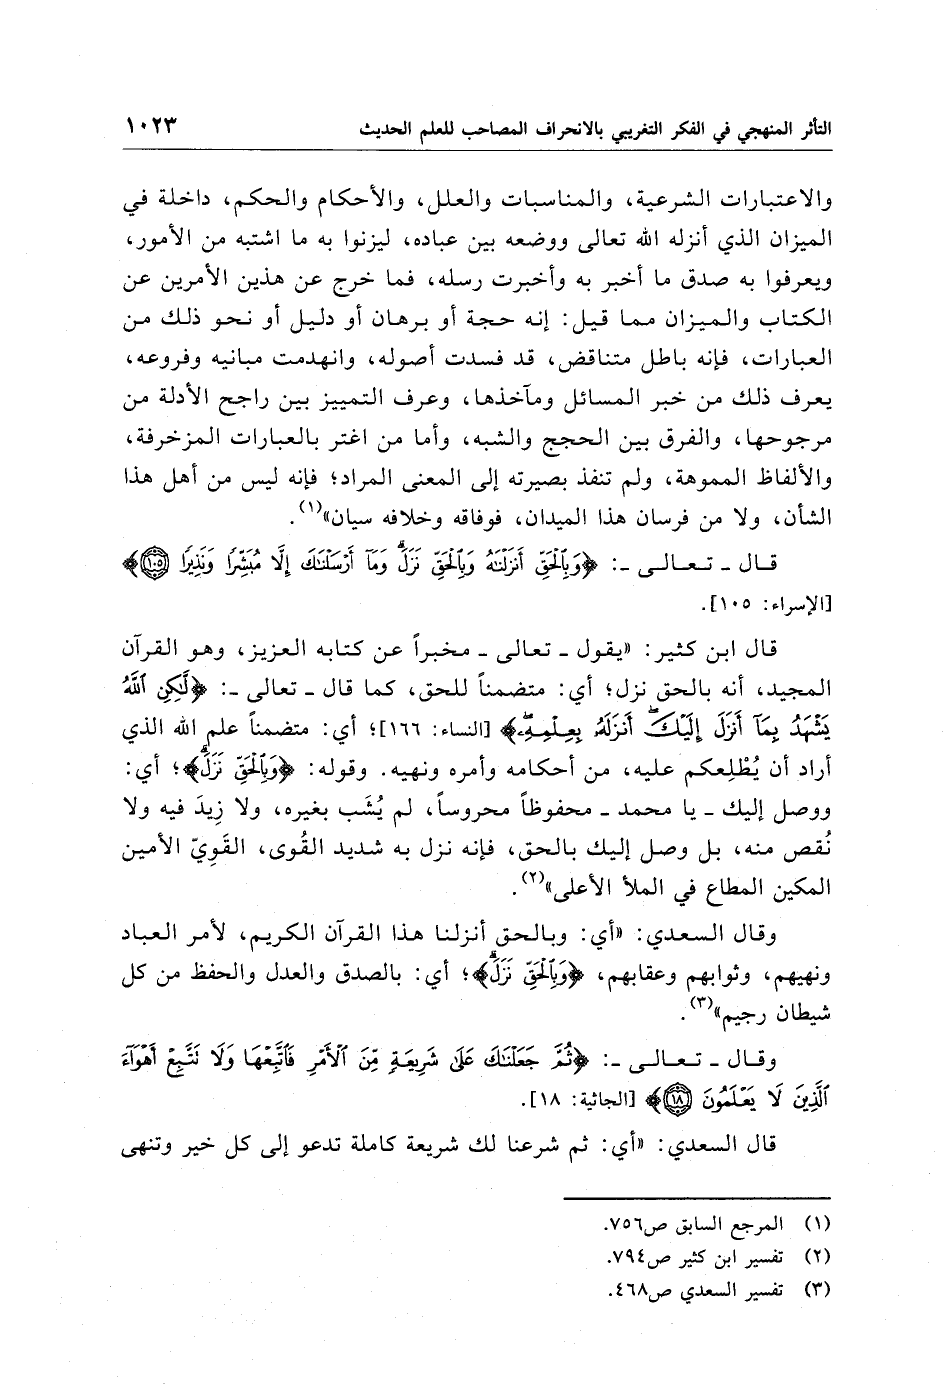 التأثر المنهجي في الفكر التغريبي بالانحراف المصاحب للعلم الحديث ١٠٢٣
والاعتبارات الشرعية، والمناسبات والعلل، والأحكام والحكم، داخلة في
الميزان الذي أنزله الله تعالى ووضعه بين عباده، ليزنوا به ما اشتبه من الأمور،
ويعرفوا به صدق ما أخبر به وأخبرت رسله، فما خرج عن هذين الأمرين عن
الكتاب والميزان مما قيل: إنه حجة أو برهان أو دليل أو نحو ذلك من
العبارات، فإنه باطل متناقض، قد فسدت أصوله، وانهدمت مبانيه وفروعه،
يعرف ذلك من خبر المسائل ومآخذها، وعرف التمييز بين راجح الأدلة من
مرجوحها، والفرق بين الحجج والشبه، وأما من اغتر بالعبارات المزخرفة،
والألفاظ المموهة، ولم تنفذ بصيرته إلى المعنى المراد؛ فإنه ليس من أهل هذا
الشأن، ولا من فرسان هذا الميدان، فوفاقه وخلافه سيان»(١).
قال ـ تعالى ـ: ﴿وَبِٱلْحَقِّ أَنزَلْنَٰهُ وَبِٱلْحَقِّ نَزَلَ ۗ وَمَآ أَرْسَلْنَٰكَ إِلَّا مُبَشِّرًا وَنَذِيرًا ١٠٥﴾
[الإسراء: ١٠٥].
قال ابن كثير: «يقول ـ تعالى ـ مخبراً عن كتابه العزيز، وهو القرآن
المجيد، أنه بالحق نزل؛ أي: متضمناً للحق، كما قال ـ تعالى ـ: ﴿لَّٰكِنِ ٱللَّهُ
يَشْهَدُ بِمَآ أَنزَلَ إِلَيْكَ ۖ أَنزَلَهُۥ بِعِلْمِهِۦ ۖ﴾ [النساء: ١٦٦]؛ أي: متضمناً علم الله الذي
أراد أن يُطْلِعكم عليه، من أحكامه وأمره ونهيه. وقوله: ﴿وَبِٱلْحَقِّ نَزَلَ ۗ﴾؛ أي:
ووصل إليك ـ يا محمد ـ محفوظاً محروساً، لم يُشَب بغيره، ولا زِيدَ فيه ولا
نُقص منه، بل وصل إليك بالحق، فإنه نزل به شديد القُوى، القَوِيّ الأمين
المكين المطاع في الملأ الأعلى»(٢).
وقال السعدي: «أي: وبالحق أنزلنا هذا القرآن الكريم، لأمر العباد
ونهيهم، وثوابهم وعقابهم، ﴿وَبِٱلْحَقِّ نَزَلَ ۗ﴾؛ أي: بالصدق والعدل والحفظ من كل
شيطان رجيم»(٣).
وقال ـ تعالى ـ: ﴿ثُمَّ جَعَلْنَٰكَ عَلَىٰ شَرِيعَةٍ مِّنَ ٱلْأَمْرِ فَٱتَّبِعْهَا وَلَا تَتَّبِعْ أَهْوَآءَ
ٱلَّذِينَ لَا يَعْلَمُونَ ١٨﴾ [الجاثية: ١٨].
قال السعدي: «أي: ثم شرعنا لك شريعة كاملة تدعو إلى كل خير وتنهى
(١) المرجع السابق ص٧٥٦.
(٢) تفسير ابن كثير ص٧٩٤.
(٣) تفسير السعدي ص٤٦٨.